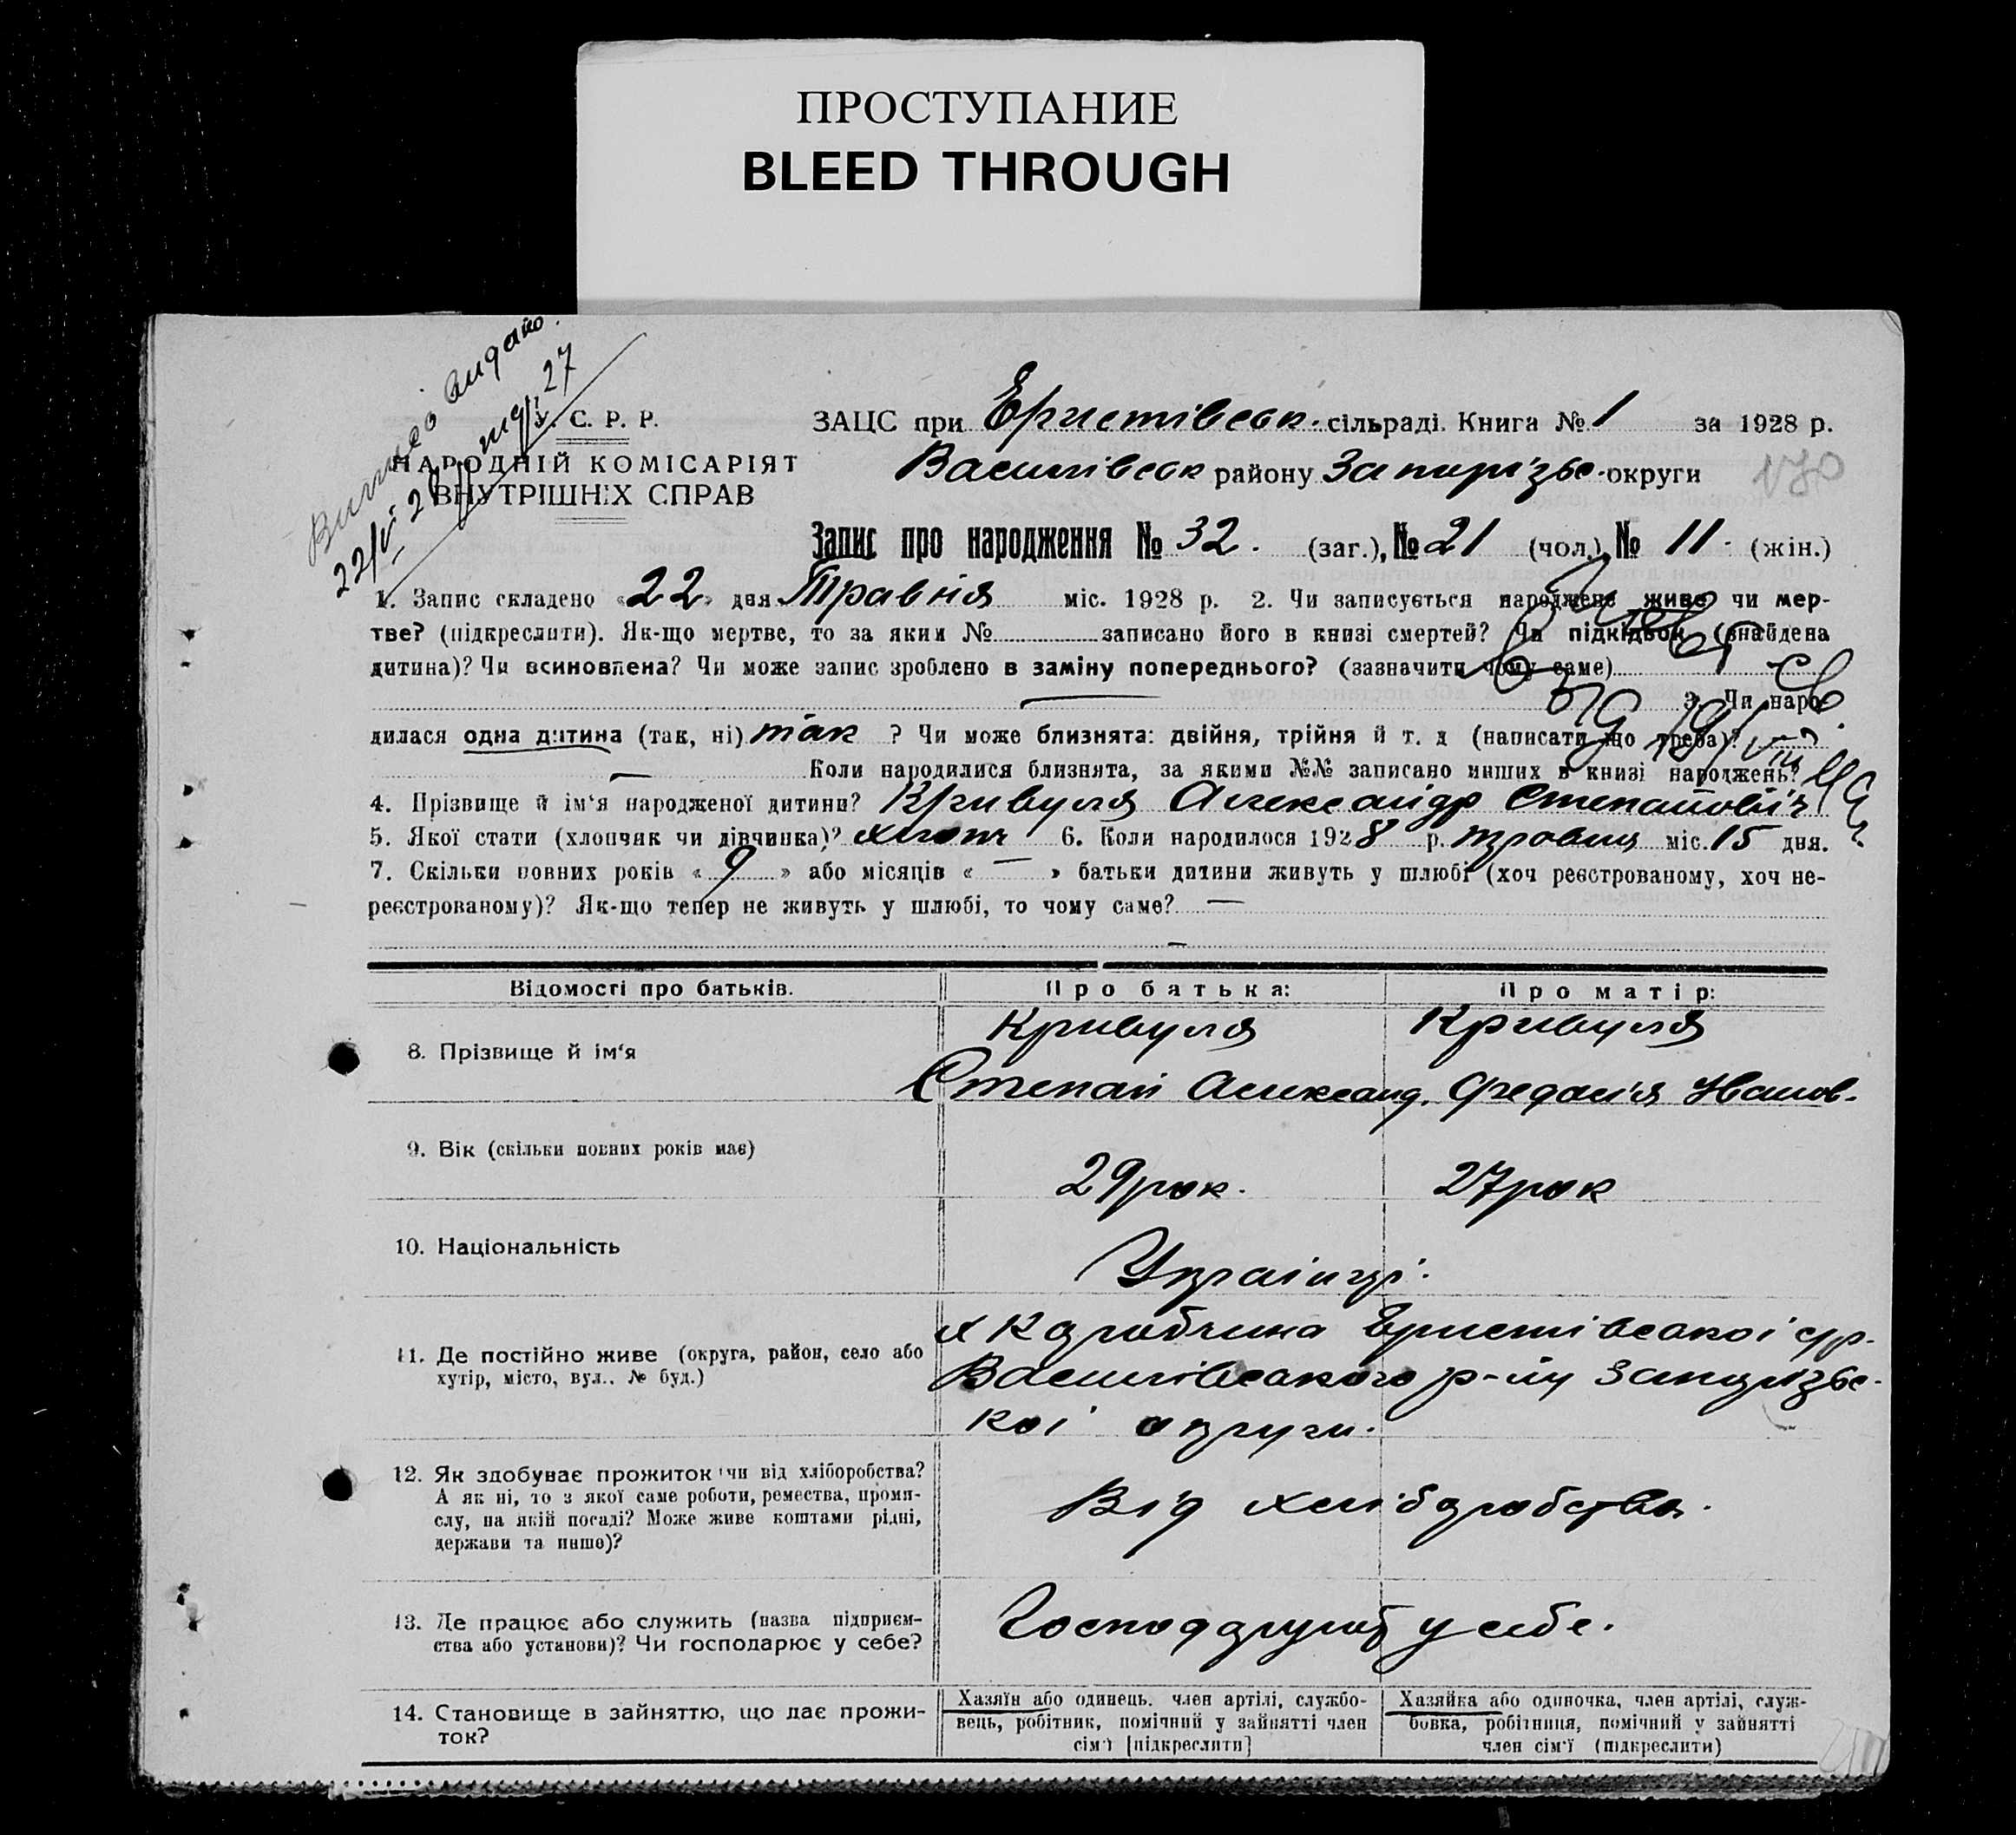 ПРОСТУПАНИЕ
BLEED THROUGH
У. С. Р. Р.
НАРОДНІЙ КОМІСАРІЯТ
ВНУТРІШНІХ СПРАВ
видано
22/VI 28
ЗАЦС при Еристівськ. сільраді. Книга № 1 за 1928 р.
Василівськ району Запорізьк. округи
130
Запис про народження № 32. (заг.), № 21 (чол.), № 11 (жін.)
1. Запис складено «22» дня Травня міс. 1928 р. 2. Чи записується народжене живе чи мер-
тве? (підкреслити). Як-що мертве, то за яким № записано його в книзі смертей? Чи підкідьок (знайдена
дитина)? Чи всиновлена? Чи може запис зроблено в заміну попереднього? (зазначити чому саме)
3. Чи наро-
дилася одна дитина (так, ні) так ? Чи може близнята: двійня, трійня й т. д (написати що треба)?
Коли народилися близнята, за якими №№ записано инших в книзі народжень?
4. Прізвище й ім'я народженої дитини? Кривуля Александр Степанович
5. Якої стати (хлопчик чи дівчинка)? хлопч 6. Коли народилося 1928 р. травня міс. 15 дня.
7. Скільки повних років «9» або місяців «—» батьки дитини живуть у шлюбі (хоч реєстрованому, хоч не-
реєстрованому)? Як-що тепер не живуть у шлюбі, то чому саме? —
Відомості про батьків. Про батька: Про матір:
8. Прізвище й ім'я Кривуля Степан Александ. Кривуля Федосія Иванов.
9. Вік (скільки повних років має) 29 рок. 27 рок
10. Національність Українці.
11. Де постійно живе (округа, район, село або
хутір, місто, вул., № буд.)
х Коробчина Еристівської с/р.
Василівського р-ну Запорізьс-
кої округи.
12. Як здобуває прожиток чи від хліборобства?
А як ні, то з якої саме роботи, ремества, проми-
слу, на якій посаді? Може живе коштами рідні,
держави та инше)?
Від хліборобства.
13. Де працює або служить (назва підприєм-
ства або установи)? Чи господарює у себе?
Господарують у себе.
14. Становище в зайняттю, що дає прожи-
ток?
Хазяїн або одинець. член артілі, службо-
вець, робітник, помічний у зайнятті член
сім'ї [підкреслити]
Хазяйка або одиночка, член артілі, служ-
бовка, робітниця, помічний у зайнятті
член сім'ї (підкреслити)